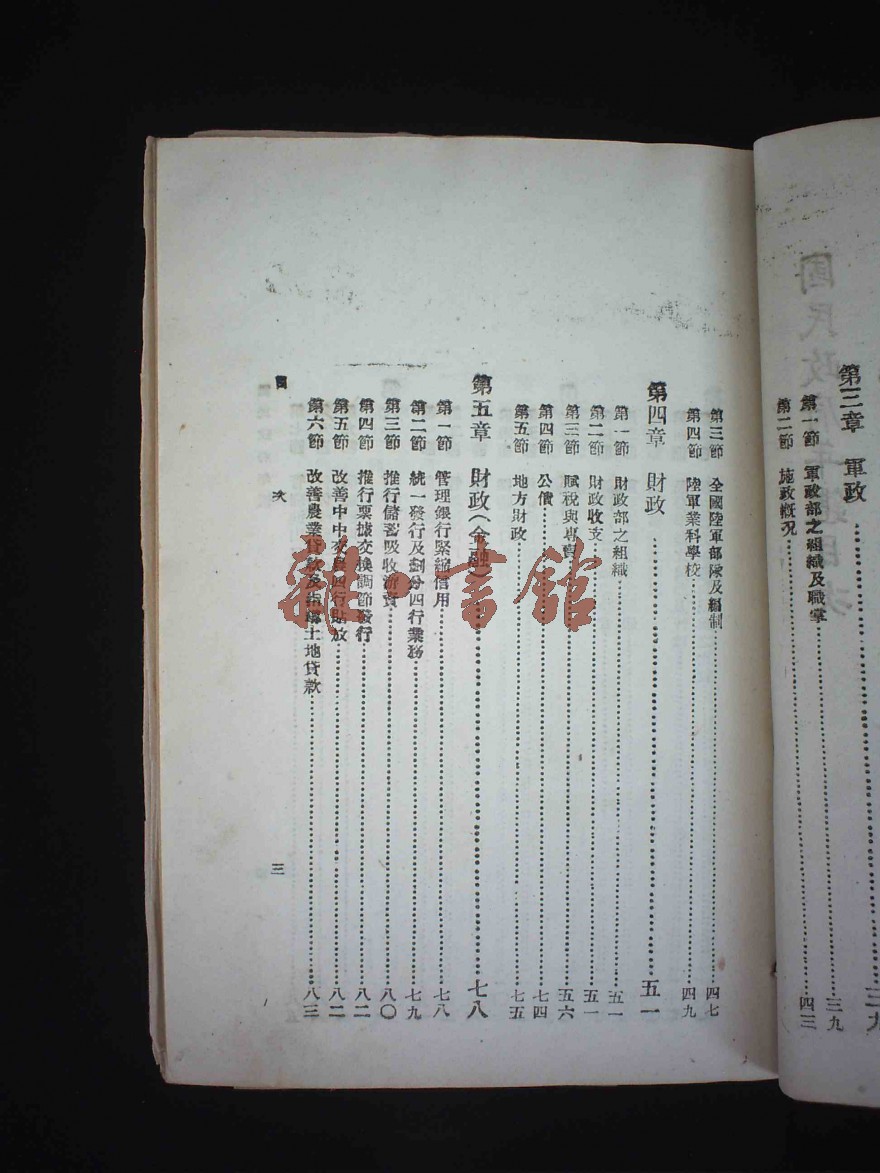 第三章　軍政……三九
第一節　軍政部之組織及職掌……三九
第二節　施政概况……四三
第三節　全國陸軍部隊及編制……四七
第四節　陸軍業科學校……四九
第四章　財政……五一
第一節　財政部之組織……五一
第二節　財政收支……五一
第三節　賦稅與專賣……五六
第四節　公債……七四
第五節　地方財政……七五
第五章　財政（金融）……七八
第一節　管理銀行緊縮信用……七八
第二節　統一發行及劃分四行業務……七九
第三節　推行儲蓄吸收游資……八〇
第四節　推行票據交換調節發行……八二
第五節　改善中中交農四行貼放……八二
第六節　改善農業貸款及土地貸款……八三
目　次　三
雜書館